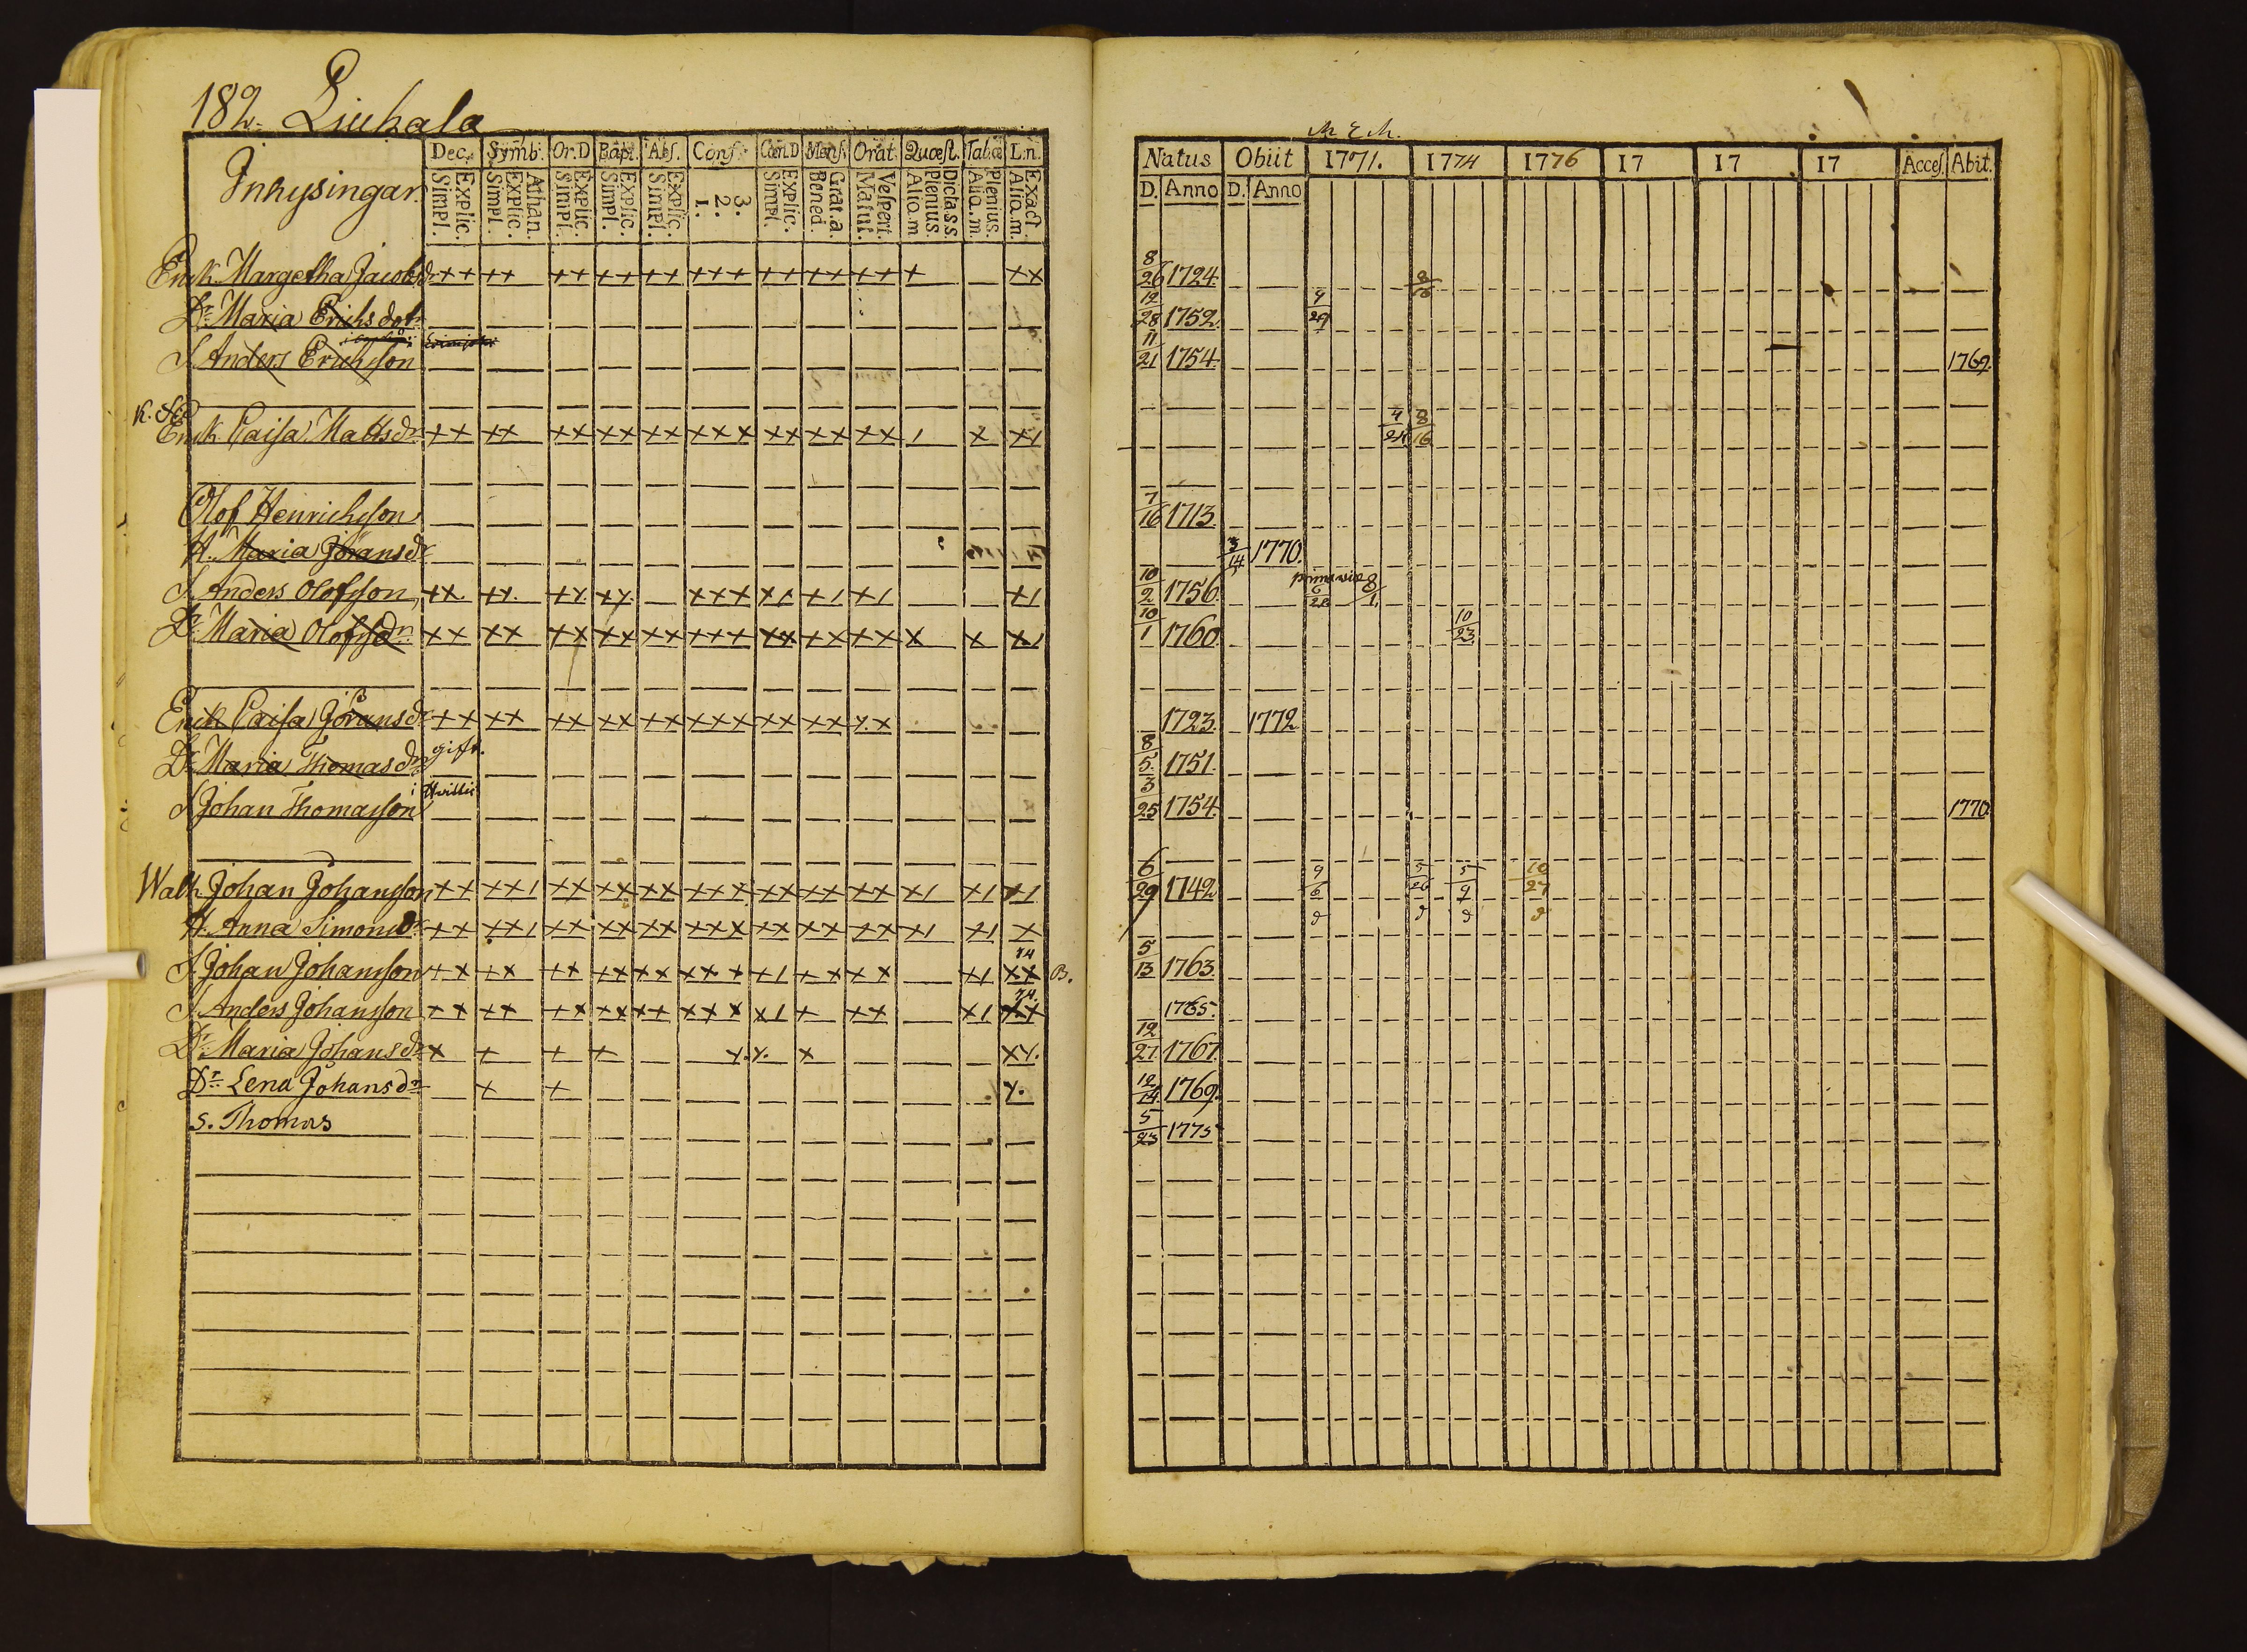 182. Liuhala
Inhysingar.
Dec. Symb. Or.D Bapt. Abs. Conf. Cœn.D Mens. Orat. Quæst. Tab.œ L.n.
Explic. Simpl. Athan. Explic. Simpl. Explic. Simpl. Explic. Simpl. Explic. Simpl. 3. 2. 1. Explic. Simpl. Grat.a. Bened. Vespert. Matut. Dicta s.s. Plenius. Aliq.m Plenius. Aliq.m. Exact. Aliq.m.
Enck. Margetha Jacobsdr ++ ++ ++ ++ ++ +++ ++ ++ ++ + ++
Dr. Maria Erichsdotr
S. Anders Erichsson
K. Enck. Caisa Mattsdr ++ ++ ++ ++ ++ +++ ++ ++ ++ / + +/
Olof Henrichsson
H. Maria Göransdr
S. Anders Olofsson ++ ++ ++ ++ +++ +/ +/ +/ +/
Dr. Maria Olofsdr ++ ++ ++ ++ ++ +++ ++ ++ ++ + + +/
Enck Caisa Göransdr ++ ++ ++ ++ ++ +++ ++ ++ ++
Dr. Maria Thomasdr gift.
S. Johan Thomasson
Walk. Johan Johansson ++ ++/ ++ ++ ++ +++ ++ ++ ++ +/ +/ +/
H. Anna Simonsdr ++ ++/ ++ ++ ++ +++ ++ ++ ++ +/ +/ +
74
S. Johan Johansson ++ ++ ++ ++ ++ +++ +/ ++ ++ +/ ++ B.
74.
S. Anders Johansson ++ ++ ++ ++ ++ +++ +/ + ++ +/ ++
Dr. Maria Johansdr + + + + ++ + ++
Dr. Lena Johansdr + + +
S. Thomas
Natus Obiit 1771. 1774 1776 17 17 17 Acces. Abit.
D. Anno D. Anno
8/26 1724. 8/16
12/28 1752. 4/29
11/21 1754. 1769.
4/24 8/16
7/16 1713.
3/14 1770.
10/2 1756. 6/28 8/1.
10/1 1760. 10/23
1723. 1772
8/5. 1751.
3/25 1754. 1770.
6/29 1742 4/6 5/26 5/9 10/27
5/13 1763.
1765.
12/27 1767.
12/14 1769.
5/23 1775